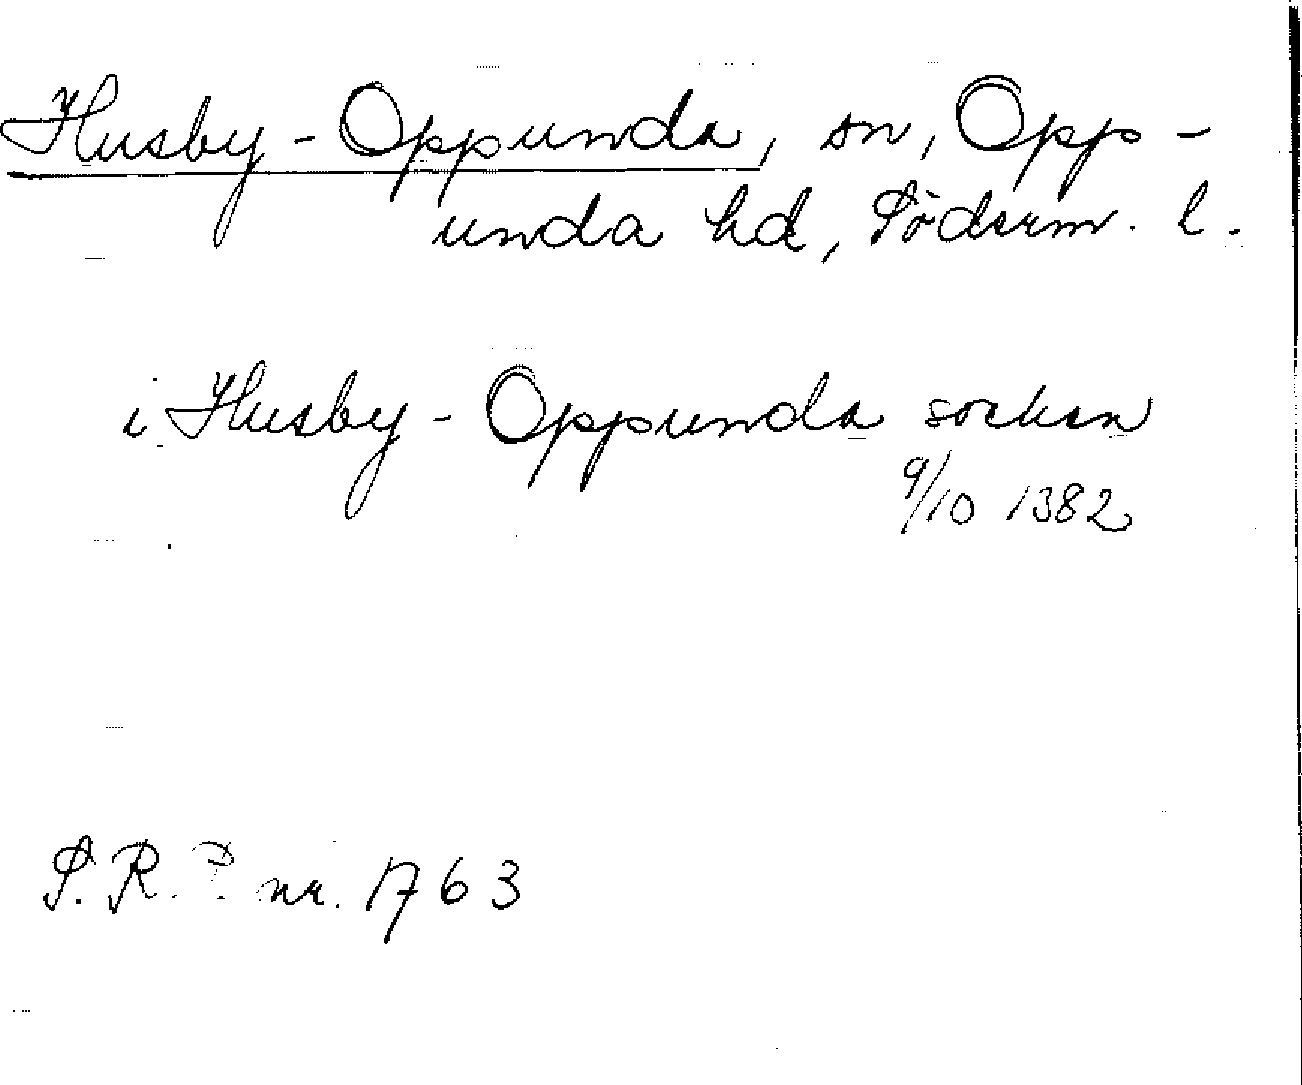 Husby-Oppunda, sn, Opp-
unda hd, Söderm. l.
i Husby-Oppunda socken
9/10 1382
S.R.P. nr. 1763